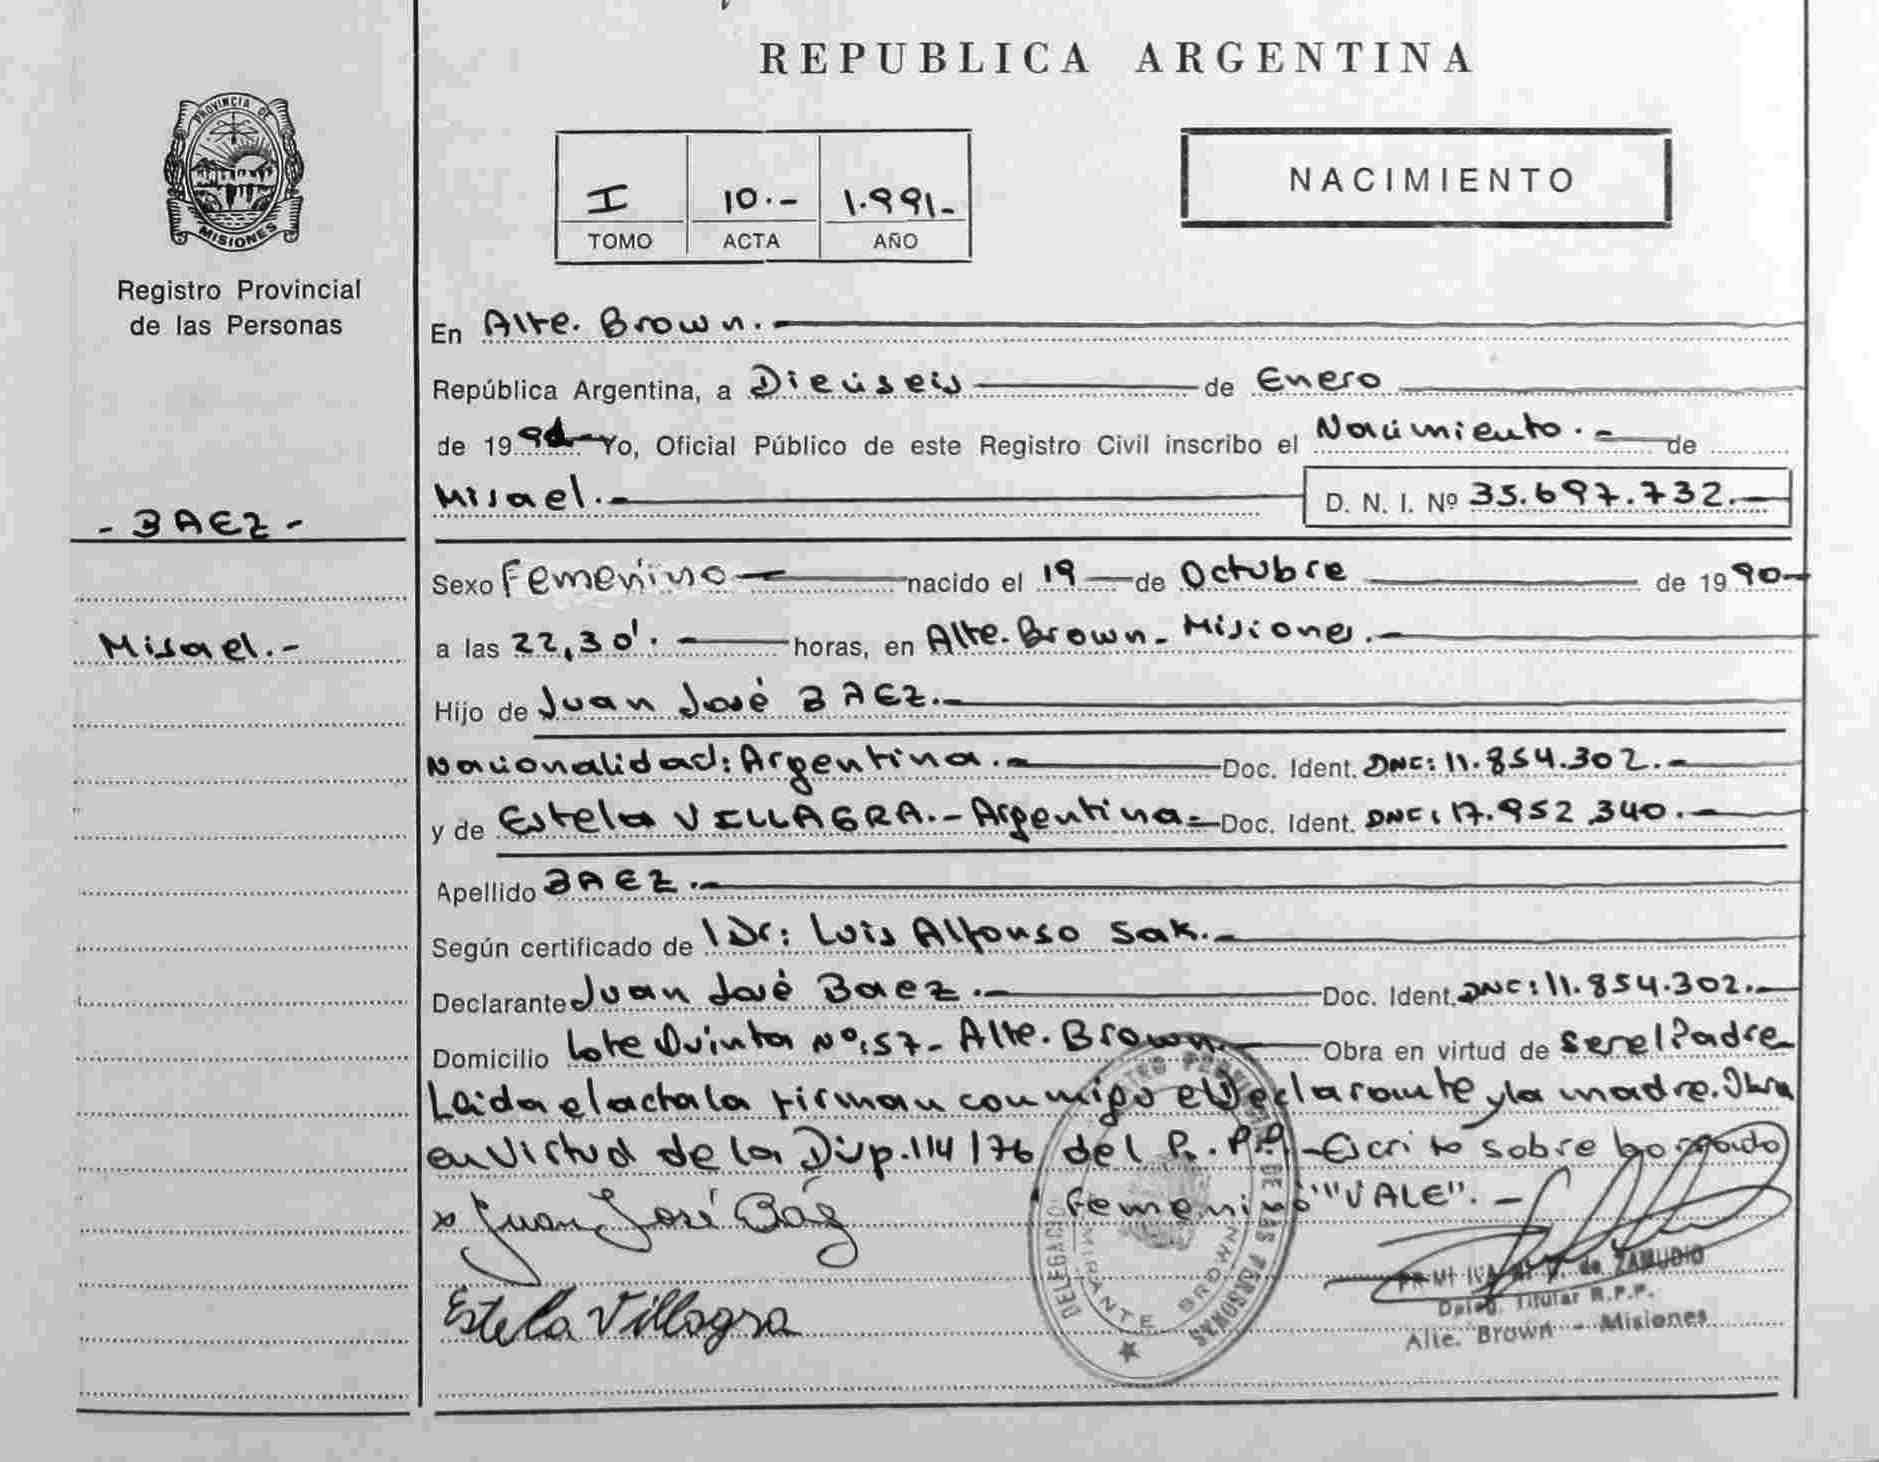 REPUBLICA ARGENTINA
PROVINCIA DE
MISIONES
Registro Provincial
de las Personas
I 10.- 1.991-
TOMO ACTA AÑO
NACIMIENTO
En Alte. Brown.-
República Argentina, a Dieciseis de Enero
de 1991 Yo, Oficial Público de este Registro Civil inscribo el Nacimiento.- de
Misael.- D. N. I. Nº 35.697.732.-
- BAEZ -
Sexo Femenino nacido el 19 de Octubre de 1990-
Misael.-
a las 22,30'.- horas, en Alte. Brown - Misiones.-
Hijo de Juan José BAEZ.-
Nacionalidad: Argentina.- Doc. Ident. DNC: 11.854.302.-
y de Estela VILLAGRA.- Argentina= Doc. Ident. DNC: 17.952.340.-
Apellido BAEZ.-
Según certificado de Dr: Luis Alfonso Sak.-
Declarante Juan José Baez.- Doc. Ident. DNC: 11.854.302.-
Domicilio Lote Quinta Nº:57- Alte. Brown.- Obra en virtud de ser el Padre
Leida el acta la firman conmigo el Declarante y la madre. Obra
en virtud de la Disp. 114/76 del R. P.P.-Escrito sobre borrado
Femenino "VALE".-
Juan José Báez
Estela Villagra
DE LAS PERSONAS
DELEGACION
ALMIRANTE BROWN
de ZAMUDIO
Deleg. Titular R.P.P.
Alte. Brown - Misiones